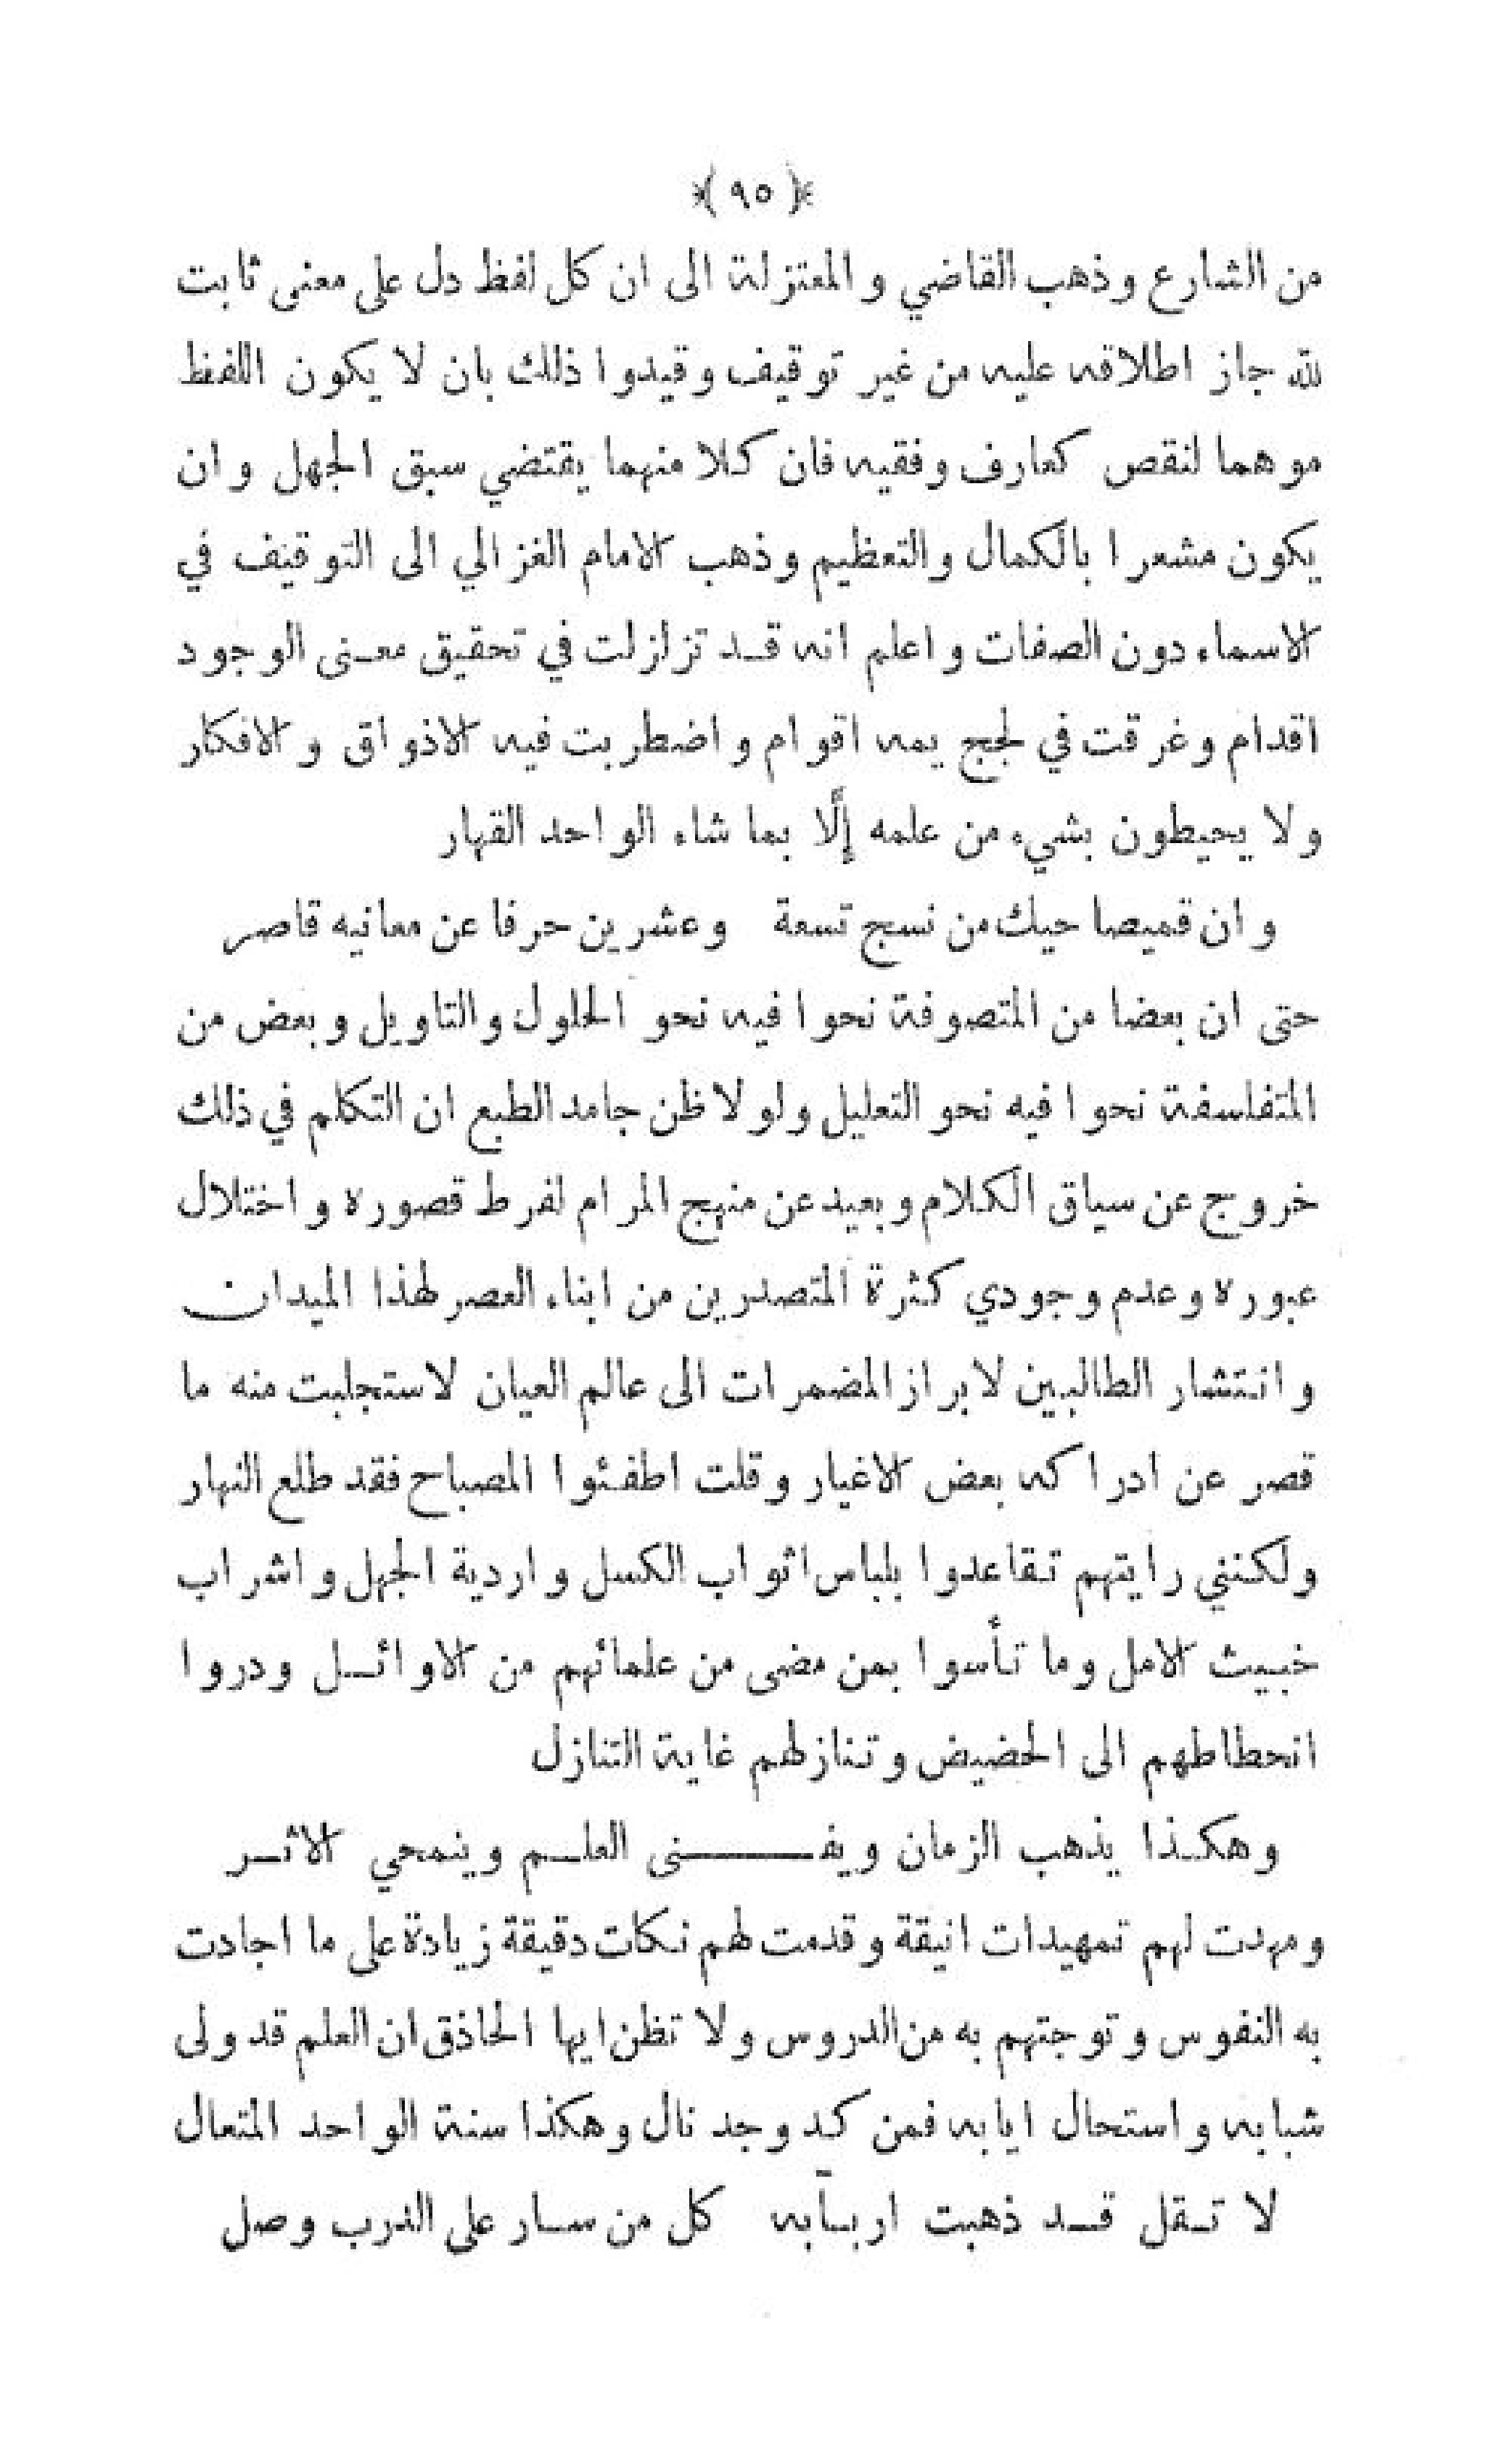 ﴿ ٩٥ ﴾
من الشارع وذهب القاضي والمعتزلة الى ان كل لفظ دل على معنى ثابت
لله جاز اطلاقه عليه من غير توقيف وقيدوا ذلك بان لا يكون اللفظ
موهما لنقص كعارف وفقيه فان كلا منهما يقتضي سبق الجهل وان
يكون مشعرا بالكمال والتعظيم وذهب الامام الغزالي الى التوقيف في
الاسماء دون الصفات واعلم انه قد تزلزلت في تحقيق معنى الوجود
اقدام وغرقت في لجج يمه اقوام واضطربت فيه الاذواق والافكار
ولا يحيطون بشيء من علمه إلَّا بما شاء الواحد القهار
وان قميصا حيك من نسج تسعة وعشرين حرفا عن معانيه قاصر
حتى ان بعضا من المتصوفة نحوا فيه نحو الحلول والتاويل وبعض من
المتفلسفة نحوا فيه نحو التعليل ولولا ظن جامد الطبع ان التكلم في ذلك
خروج عن سياق الكلام وبعيد عن منهج المرام لفرط قصوره واختلال
عبوره وعدم وجودي كثرة المتصدرين من ابناء العصر لهذا الميدان
وانتشار الطالبين لابراز المضمرات الى عالم العيان لاستجلبت منه ما
قصر عن ادراكه بعض الاغيار وقلت اطفئوا المصباح فقد طلع النهار
ولكنني رايتهم تقاعدوا بلباس اثواب الكسل واردية الجهل واشراب
خبيث الامل وما تأسوا بمن مضى من علمائهم من الاوائل ودروا
انحطاطهم الى الحضيض وتنازلهم غاية التنازل
وهكذا يذهب الزمان ويفنى العلم وينمحي الاثر
ومهدت لهم تمهيدات انيقة وقدمت لهم نكات دقيقة زيادة على ما اجادت
به النفوس وتوجتهم به من الدروس ولا تظن ايها الحاذق ان العلم قد ولى
شبابه واستحال ايابه فمن كد وجد نال وهكذا سنة الواحد المتعال
لا تقل قد ذهبت اربابه كل من سار على الدرب وصل